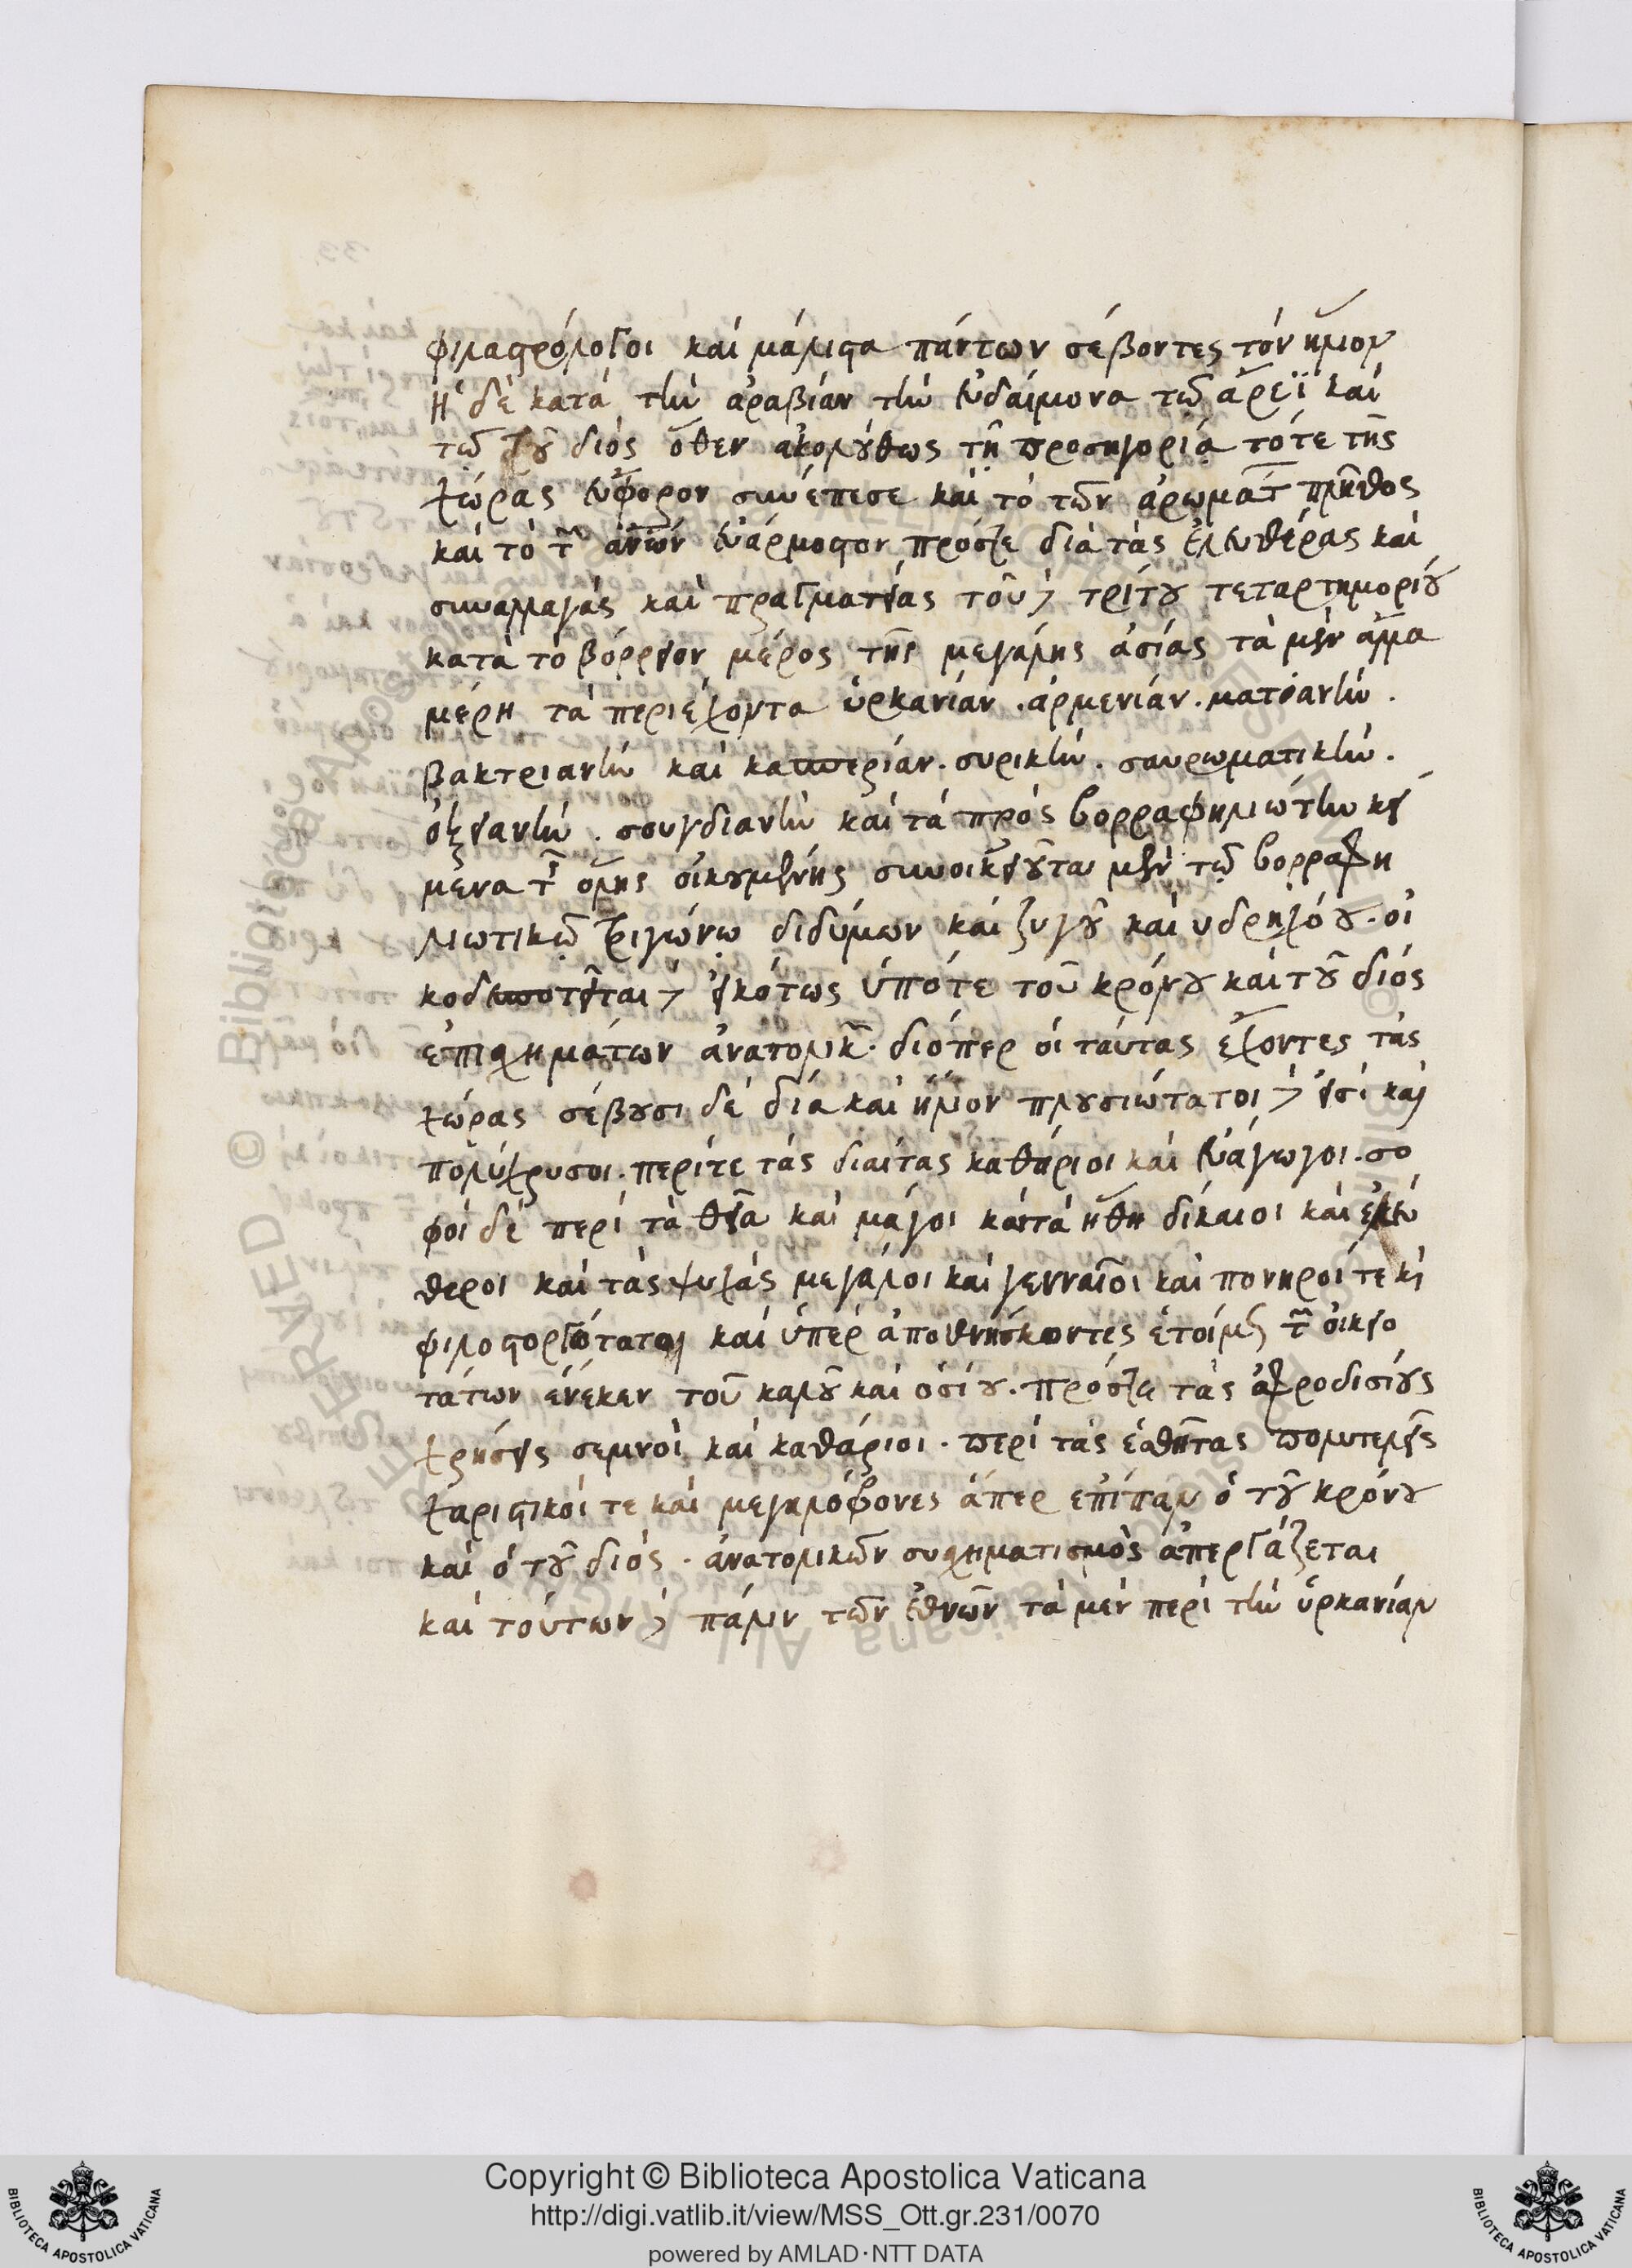 φιλαστρόλογοι καὶ μάλιστα πάντων σέβοντες τὸν ἥλιον
ἡ δὲ κατὰ τὴν ἀραβίαν τὴν εὐδαίμονα τῷ ἄρεϊ καὶ
τῷ τοῦ διός ὅθεν ἀκολούθως τῇ προσηγορίᾳ τότε τῆς
χώρας εὔφορον συνέπεσε καὶ τὸ τῶν ἀρωμάτ πλῆθος
καὶ τὸ τ ἀνων εὐάρμοστον πρόσχε διὰ τὰς ἐλευθέρας καὶ
συναλλαγάς καὶ πραγματείας τοῦ δὲ τρίτου τεταρτημορίου
κατὰ τὸ βόρρειον μέρος τῆς μεγάλης ἀσίας τὰ μὲν ἄλλα
μέρη τὰ περιέχοντα ὑρκανίαν. ἀρμενίαν. ματιανήν.
βακτριανήν καὶ κασπερίαν. συρικήν. σαυρωματικήν.
ὀξειανήν. σουγδιανήν καὶ τὰ πρὸς βορραφηλιώτην κεί
μενα τ ὅλης οἰκουμένης συνοικειοῦται μὲν τῷ βορραφη
λιωτικῷ τριγώνῳ διδύμων καὶ ζυγοῦ καὶ υδρηχόου. οἰ
κοδεσποτεῖται δὲ εἰκότως ὑπότε τοῦ κρόνου καὶ τοῦ διός
ἐπισχημάτων ἀνατολικ. διόπερ οἱ ταύτας ἔχοντες τὰς
χώρας σέβουσι δὲ δία καὶ ἥλιον πλουσιώτατοι δὲ εἰσὶ καὶ
πολύχρυσοι. περίτε τὰς διαίτας καθάριοι καὶ εὐάγωγοι. σο
φοὶ δὲ περὶ τὰ θεῖα καὶ μάγοι κατὰ ἤθη δίκαιοι καὶ ἐλευ
θεροι καὶ τὰς ψυχάς μεγάλοι καὶ γενναῖοι καὶ πονηροί τε καὶ
φιλοστοργότατοι καὶ ὑπὲρ ἀποθνήσκοντες ἑτοίμως τ οἰκειο
τάτων ἕνεκεν τοῦ καλοῦ καὶ ὁσίου. πρόσχε τὰς ἀφροδισίους
χρήσεις σεμνοὶ καὶ καθάριοι. περὶ τὰς ἐσθῆτας πολυτελεῖς
χαριστικοί τε καὶ μεγαλόφρονες ἅπερ ἐπίπαν ὁ τοῦ κρόνου
καὶ ὁ τοῦ διός. ἀνατολικῶν συσχηματισμὸς ἀπεργάζεται
καὶ τούτων δὲ πάλιν τῶν ἐθνῶν τὰ μὲν περὶ τὴν ὑρκανίαν
Copyright © Biblioteca Apostolica Vaticana
http://digi.vatlib.it/view/MSS_Ott.gr.231/0070
powered by AMLAD·NTT DATA